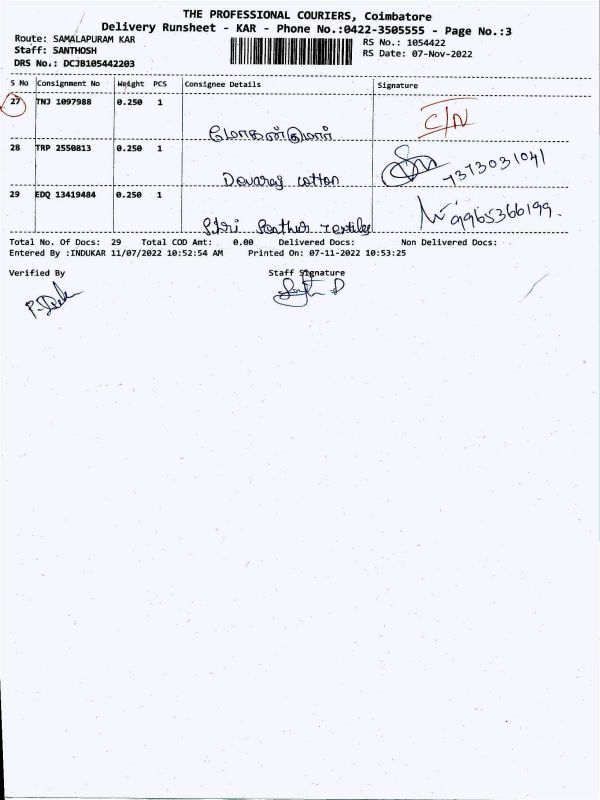 THE PROFESSIONAL COURIERS, Coimbatore
Delivery Runsheet - KAR - Phone No.:0422-3505555 - Page No.:3
Route: SAMALAPURAM KAR
RS No.: 1054422
Staff: SANTHOSH
RS Date: 07-Nov-2022
DRS No.: DCJB105442203
S No Consignment No Weight PCS Consignee Details Signature
27 TNJ 1097988 0.250 1 C/N
மோகன்குமார்
28 TRP 2550813 0.250 1 7373031041
Devaraj cotton
29 EDQ 13419484 0.250 1 9965366199.
Shri textiles
Total No. Of Docs: 29 Total COD Amt: 0.00 Delivered Docs: Non Delivered Docs:
Entered By :INDUKAR 11/07/2022 10:52:54 AM Printed On: 07-11-2022 10:53:25
Verified By Staff Signature